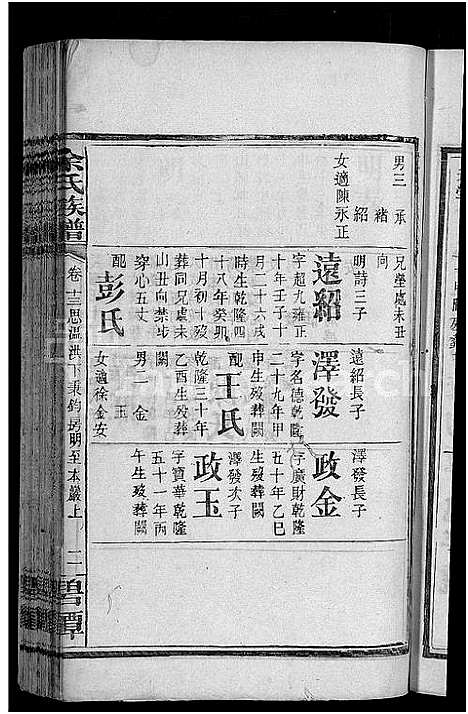 男三　承
緒
紹
女適陳永正
兄塋處未丑
向
遠紹
明詩三子
字超九雍正
十年壬子十
月二十六戌
時生乾隆四
十八年癸卯
十月初十歿
葬同兄處未
山丑向禁步
穿心五丈
配
彭氏
澤發
遠紹長子
字名德乾隆
二十九年甲
申生歿葬闕
配
王氏
乾隆三十年
乙酉生歿葬
闕
男二　金
玉
女適徐金安
政金
澤發長子
字廣財乾隆
五十年乙巳
生歿葬闕
政玉
澤發次子
字寶華乾隆
五十一年丙
午生歿葬闕
余氏族譜
卷十三思溫洪下秉鈞塝明至本嚴上
二
碧潭